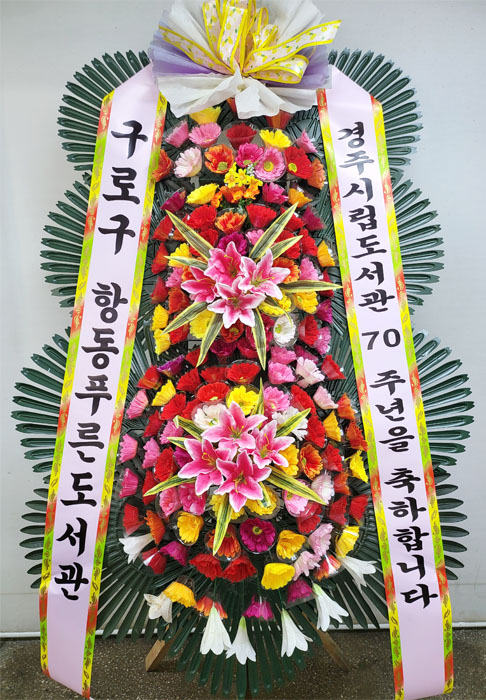 구로구 항동푸른도서관
경주시립도서관 70주년을 축하합니다